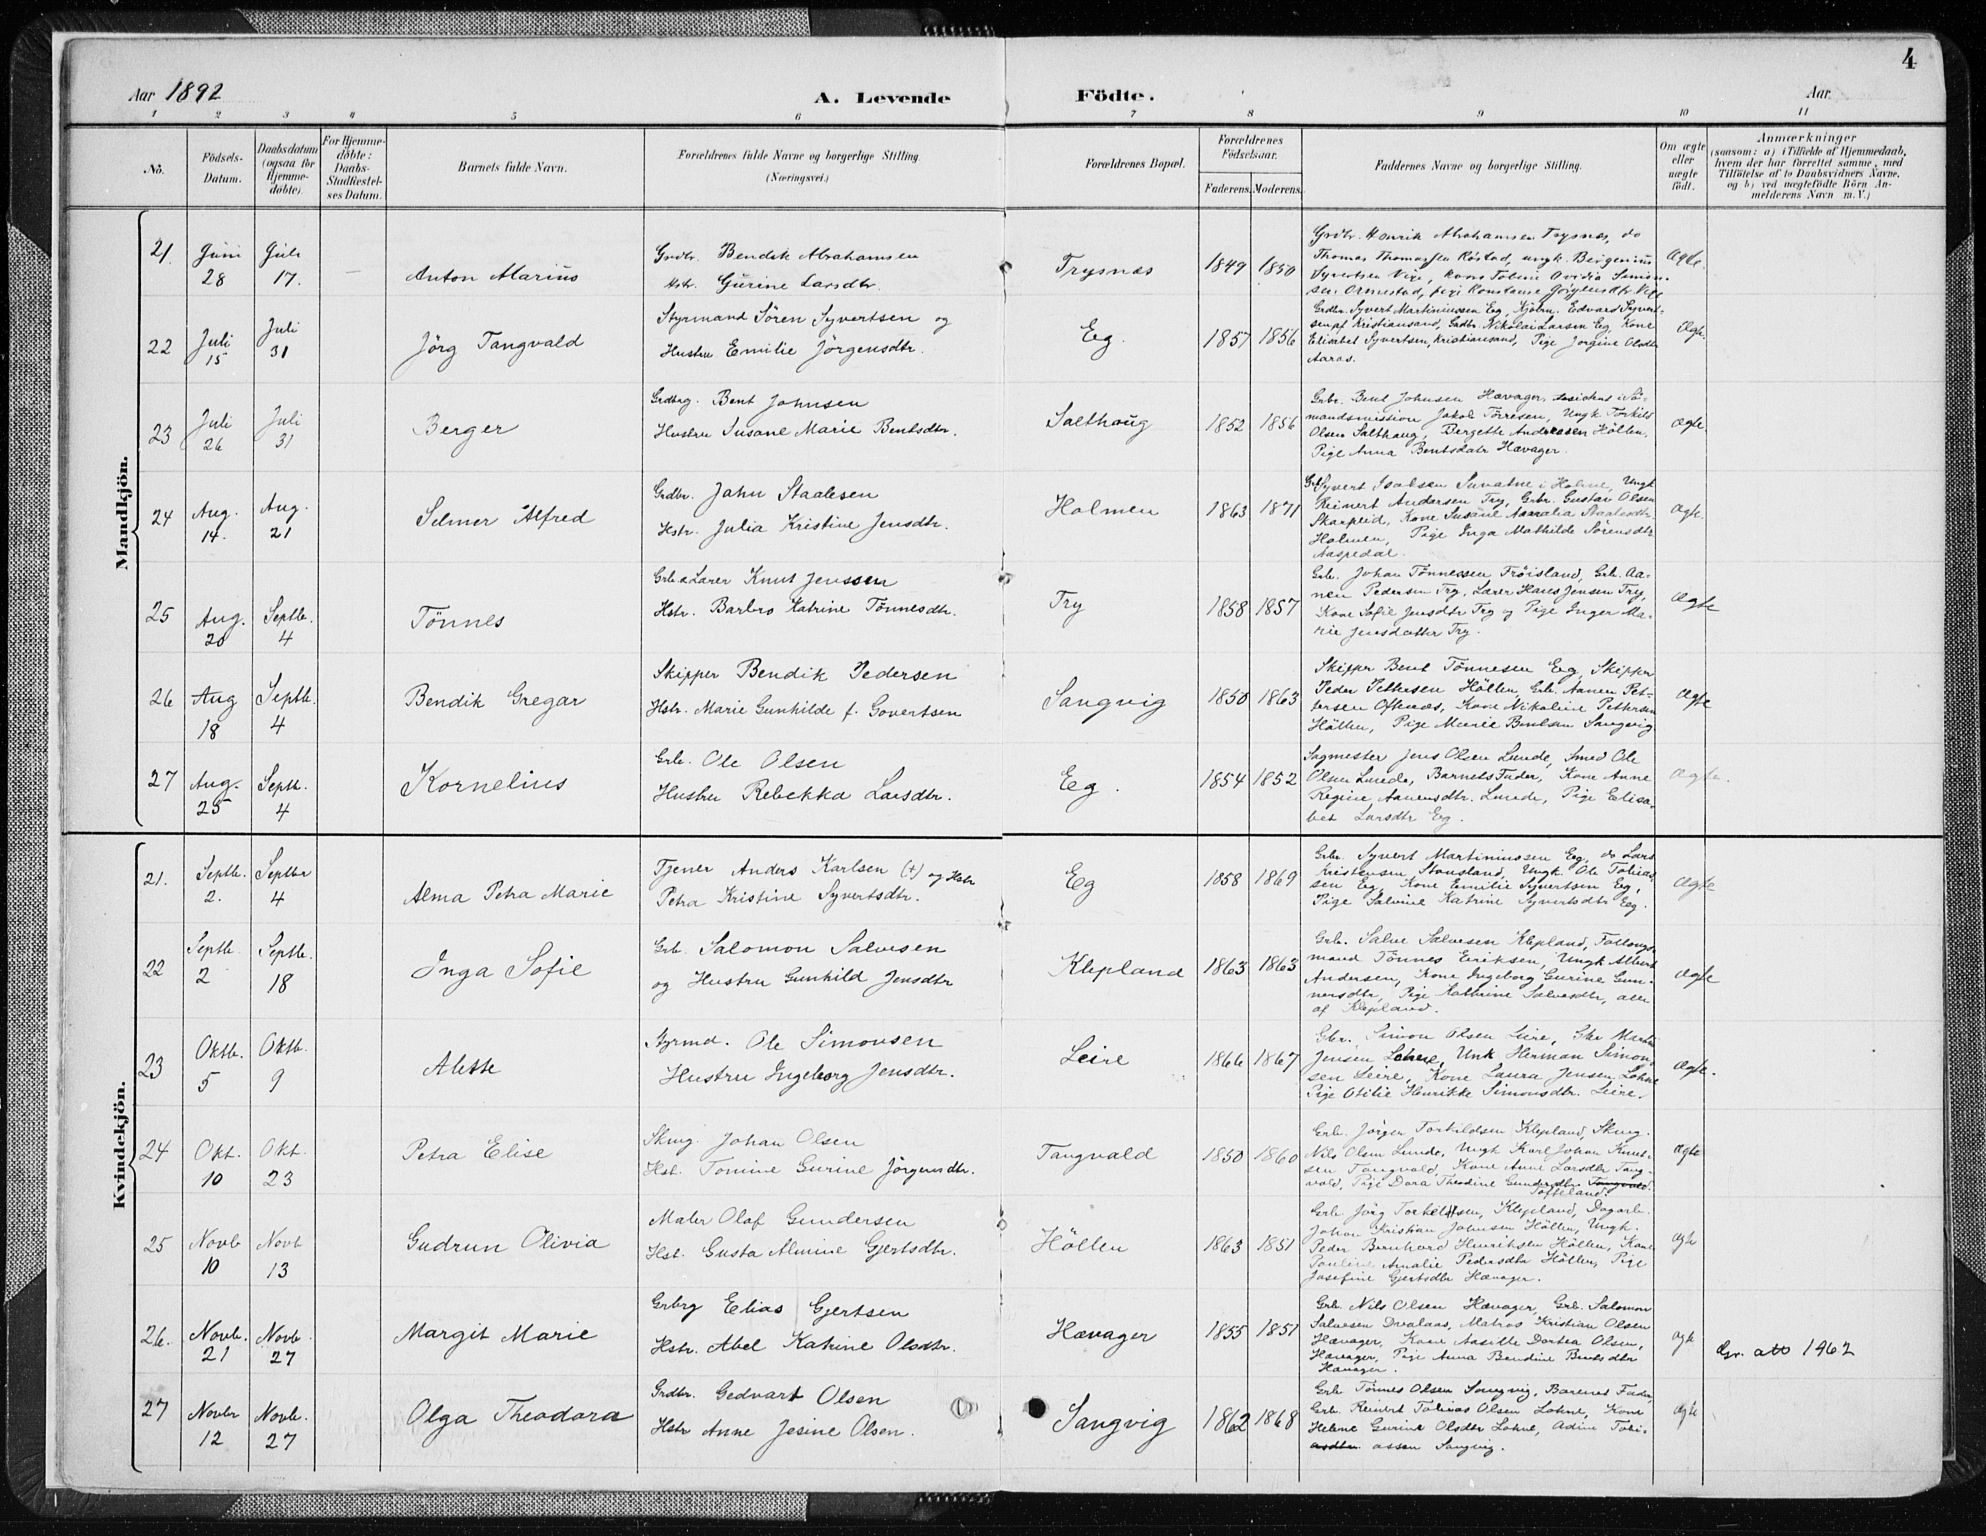 4
Aar 1892
A. Levende Födte.
Aar
1 2 3 4 5 6 7 8 9 10 11
No.
Födsels-
Datum.
Daabsdatum
(ogsaa for
Hjemme-
döbte).
For Hjemme-
döbte:
Daabs-
Stadfæstel-
ses Datum.
Barnets fulde Navn.
Forældrenes fulde Navne og borgerlige Stilling.
(Næringsvei.)
Forældrenes Bopæl.
Forældrenes
Födselsaar.
Faderens. Moderens.
Faddernes Navne og borgerlige Stilling.
Om ægte
eller
uægte
födt.
Anmærkninger
(saasom: a) i Tilfælde af Hjemmedaab,
hvem der har forrettet samme, med
Tilföielse af to Daabsvidners Navne,
og b) ved uægtefödte Börn An-
melderens Navn m. V.)
Mandkjön.
21. Juni 28 Juli 17. — Anton Marius
Grdbr. Bendik Abrahamsen
Hstr. Gurine Larsdtr.
Trysnæs 1849 1850
Grdbr. Henrik Abrahamsen Trysnæs, do
Thomas Thomassen Röstad, ungk. Bergenius
Syvertsen Vige, kone Tobine Ovidia Simon-
sen Ormestad, pige Konstanse Jörgensdtr Vige
Ægte.
22 Juli 15 Juli 31 Jörg Tangvald
Styrmand Sören Syvertsen og
Hustru Emilie Jörgensdtr.
Eg. 1857 1856
Grdbr. Syvert Martiniussen Eg, Kjöbm. Edvard Syvert-
sen af Kristiansand, Grdbr. Nikolai Larsen Eg, Kone
Elisabet Syvertsen, Kristiansand, Pige Jörgine Olsdtr
Aaras.
Ægte.
23 Juli 26 Juli 31 Berger
Grdbrg. Bent Johnsen
Hustru Susane Marie Bentsdtr.
Salthaug 1852 1856
Grbr. Bent Johnsen Hævager, Assistens i Sö-
mandsmission Jakob Törresen, Ungk. Torkild
Olsen Salthaug, Bergette Andreasen Höllen,
Pige Anna Bentsdatr Hævager.
Ægte.
24 Aug. 14. Aug. 21 Selmer Alfred
Grdbr. John Staalesen
Hstr. Julia Kristine Jensdtr.
Holmen 1863 1871
Syvert Isaksen i Holme, Ungk
Reinert Andersen Try, Grbr. Gustav Olsen
Skarpeid, Kone Susane Amalia Staalesdtr
Holmen, Pige Inga Mathilde Sörensdtr
Aaspedal.
Ægte.
25 Aug. 20 Septb. 4 Tönnes
Grb. & Lærer Knut Jenssen
Hstr. Barbro Katrine Tönnesdtr.
Try 1858 1857
Grb. Johan Tönnessen Tröisland, Grb. Aa-
nen Pedersen Try, Lærer Hans Jensen Try,
Kone Sofie Jensdtr Try og Pige Inger Ma-
rie Jensdatter Try.
Ægte
26 Aug 18 Septb. 4 Bendik Gregar
Skipper Bendik Pedersen
Hstr. Marie Gunhilde f. Govertsen
Sangvig 1850 1863
Skipper Bent Tönnesen Eg, Skipper
Peder Pettersen Höllen, Grb. Aanen Pet-
tersen Oftenæs, Kone Nikoline Pettersen
Höllen, Pige Marie Bentsen Sangvig
Ægte
27 Aug. 25 Septb. 4 Kornelius
Grb. Ole Olsen
Hustru Rebekka Larsdtr.
Eg. 1854 1852
Sagmester Jens Olsen Lunde, Smed Ole
Olsen Lunde, Barnets Fader, Kone Anne
Regine Aanensdtr. Lunde, Pige Elisa-
bet Larsdtr Eg.
Ægte.
Kvindekjön.
21. Septb. 2. Septbr 4 Alma Petra Marie
Tjener Anders Karlsen (†) og Hstr
Petra Kristine Syvertsdtr.
Eg 1858 1869
Grbr. Syvert Martiniussen Eg, do Lars
Kristensen Stousland, Ungk. Ole Tobias-
sen Eg, Kone Emilie Syvertsen Eg,
Pige Salvine Katrine Syvertsdtr Eg.
Ægte
22 Septb. 2 Septb. 18 Inga Sofie
Grb. Salomon Salvesen
og Hustru Gunhild Jensdtr
Klepland 1863 1863
Grb. Salve Salvesen Klepland,
mand Tönnes Eriksen, Ungk Albert
Andersen, Kone Ingeborg Gurine Gun-
nersdtr, Pige Kathrine Salvesdtr, alle
af Klepland.
Ægte
23 Oktb. 5 Oktb. 9 Alette
Styrmd. Ole Simonsen
Hustru Ingeborg Jensdtr.
Leire 1866 1867
Gbr. Simon Olsen Leire, Gbr Martin
Jensen Lohne, Unk Herman Simon-
sen Leire, Kone Laura Jensen Lohne
Pige Otilie Henrikke Simonsdtr. Leire.
Ægte.
24 Okt. 10 Okt. 23 Petra Elise
Skmg. Johan Olsen
Hst. Tomine Gurine Jörgensdtr.
Tangvald 1850 1860
Grb. Jörgen Torkildsen Klepland, Skmg.
Nils Olsen Lunde, Ungk Karl Johan Knut-
sen Tangvald, Kone Anne Larsdtr Tang-
vald, Pige Dora Theodine Gundersdtr Tangvald.
Tofteland.
Ægte
25 Novb 10 Novb 13 Gudrun Olivia
Maler Olaf Gundersen
Hst. Gusta Almine Gjertsdtr.
Höllen 1863 1851
Grb Jörg Torkildsen, Klepland, Dagarb.
Johan Kristian Johnsen Höllen, Ungk.
Peder Bernhard Henriksen Höllen, Kone
Pauline Amalie Pedersdtr Höllen, Pige
Josefine Gjertsdtr Hævager.
Ægte
26. Novb. 21 Novb. 27 Margit Marie
Grbrg Elias Gjertsen
Hstr. Abel Katrine Olsdtr.
Hævager 1855 1851
Grb. Nils Olsen Hævager, Grb. Salomon
Salvesen Dvalaas, Matros Kristian Olsen
Hævager, Kone Aasille Dortea Olsen,
Hævager, Pige Anna Bendine Bentsdtr
Hævager.
Ægte
att 1962
27 Novbr 12 Novb. 27 Olga Theodora
Grdbr. Gedvart Olsen
Hstr Anne Jesine Olsen.
Sangvig 1862 1868
Grb Tönnes Olsen Sangvig, Barnets Fader,
Grb. Reinert Tobias Olsen Lohne, Kone
Helene Gurine Olsdtr Lohne, Adine Tobi-
asdtr. assen Sangvig.
Ægte